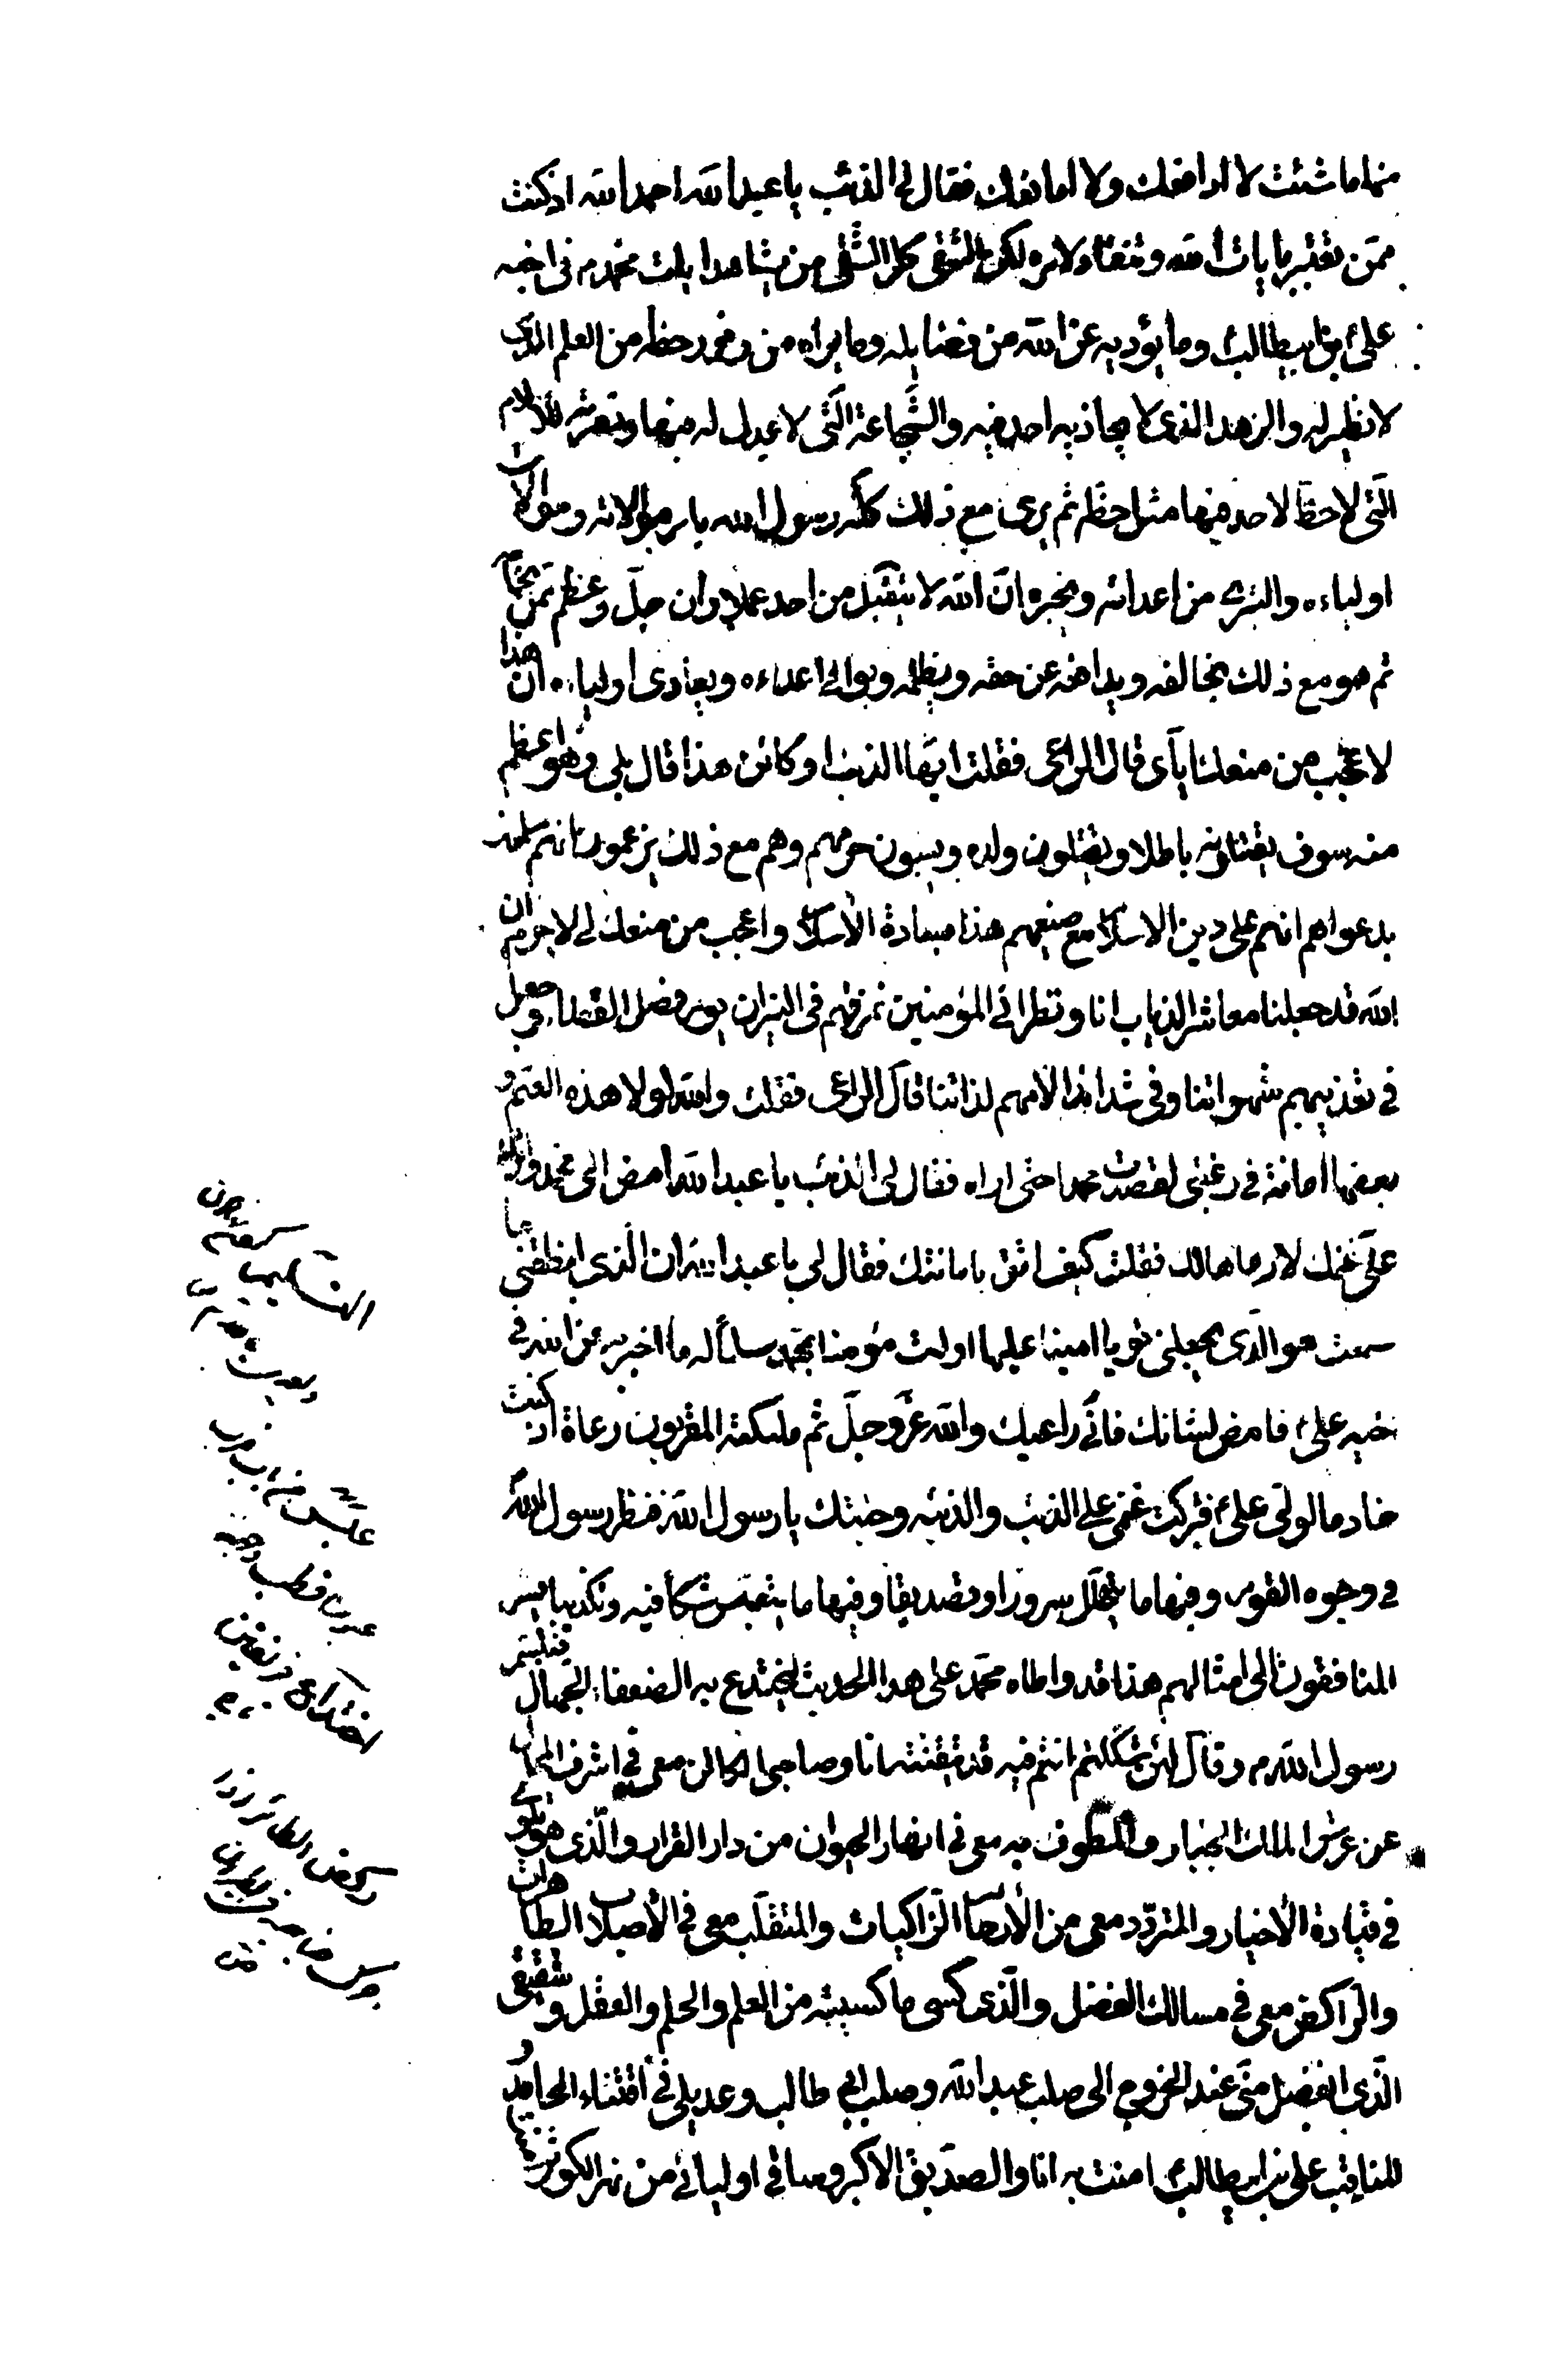 منها ما شئت لا ادافعك ولا امانعك فقال لي الذئب يا عبد الله احمد الله اذ كنت
ممن تعتبر بايات الله وتنقاد لامره لكن الشقي كل الشقي من يشاهد ايات محمد م في اخيه
علي بن ابيطالب وما يؤديه عن الله من فضايله وما يراه من وفور حظه من العلم الذي
لا نظير له والزهد الذي لا يحاذيه احد فيه والشجاعة التي لا عديل له فيها ونصرته للاسلام
التي لا حظ لاحد فيها مثل حظه ثم يرى مع ذلك كله رسول الله يامر بموالاته وموالات
اولياءه والتبري من اعدائه ويخبره ان الله لا يتقبل من احد عملا وان جل وعظم ممن يخالفه
ثم هو مع ذلك يخالفه ويدافعه عن حقه ويظلمه ويوالي اعداءه ويعادي اولياءه ان هذا
لاعجب من منعك اياي قال الراعي فقلت ايها الذئب او كائن هذا قال بلى وهو اعظم
منه سوف يقتلونه باطلا ويقتلون ولده ويسبون حرمهم وهم مع ذلك يزعمون انهم مسلمون
بدعواهم انهم على دين الاسلام مع صنيعهم هذا بسادة الاسلام واعجب من منعك لي لا جرم ان
الله قد جعلنا معاشر الذياب انا ونظرائي المؤمنين نمزقهم في النيران يوم فصل القضاء وجعل
في تعذيبهم شهواتنا وفي شدائد الامهم لذاتنا قال الراعي فقلت والله لولا هذه الغنم و
بعضها امانة في رقبتي لقصدت محمدا حتى اراه فقال لي الذئب يا عبد الله امض الى محمد واترك
علي غنمك لارعاها لك فقلت كيف اثق بامانتك فقال لي يا عبد الله ان الذي انطقني بما
سمعت هو الذي يجعلني قويا امينا عليها اولست مؤمنا بمحمد مسلما له ما اخبر به عن الله في
اخيه علي فامض لشانك فاني راعيك والله عز وجل ثم ملئكته المقربون رعاة اذ كنت
خادما لولي علي فتركت غنمي على الذئب والذئبه وجئتك يا رسول الله فنظر رسول الله
في وجوه القوم وفيها ما يتهلل سرورا وتصديقا وفيها ما يتعبس شكا فيه وتكذيبا يسر
المنافقون الى امثالهم هذا قد واطاه محمد على هذا الحديث ليختدع به الضعفاء الجهال فتبسم
رسول الله م وقال لئن شككتم انتم فيه فقد تيقنته انا وصاحبي الكائن معي في اشرف المحال
عن عرش الملك الجبار والمطوف به معي في انهار الحيوان من دار القرار والذي هو تلوي
في قيادة الاخيار والمتردد معي من الارحام الزاكيات والمتقلب معي في الاصلاب الطاهرات
والراكض معي في مسالك الفضل والذي كسى ما كسيته من العلم والحلم والعقل وشقيقي
الذي انفصل مني عند الخروج الى صلب عبد الله وصلب ابي طالب وعديلي في اقتناء المحامد و
المناقب علي بن ابيطالب امنت به انا والصديق الاكبر وساقي اوليائي من نهر الكوثر